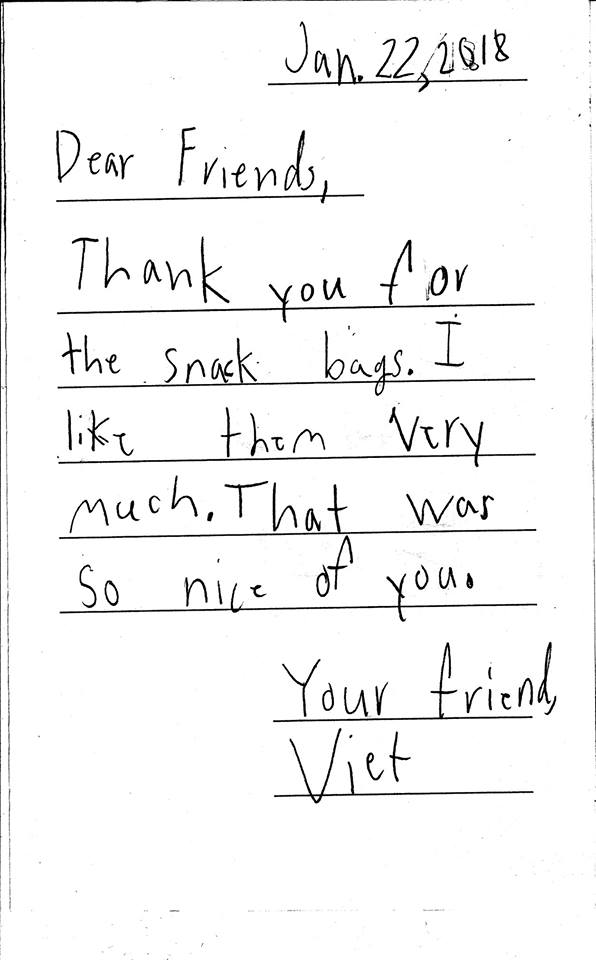 Jan. 22, 2018
Dear Friends,
Thank you for
the snack bags. I
like them very
much. That was
so nice of you.
Your friend,
Viet